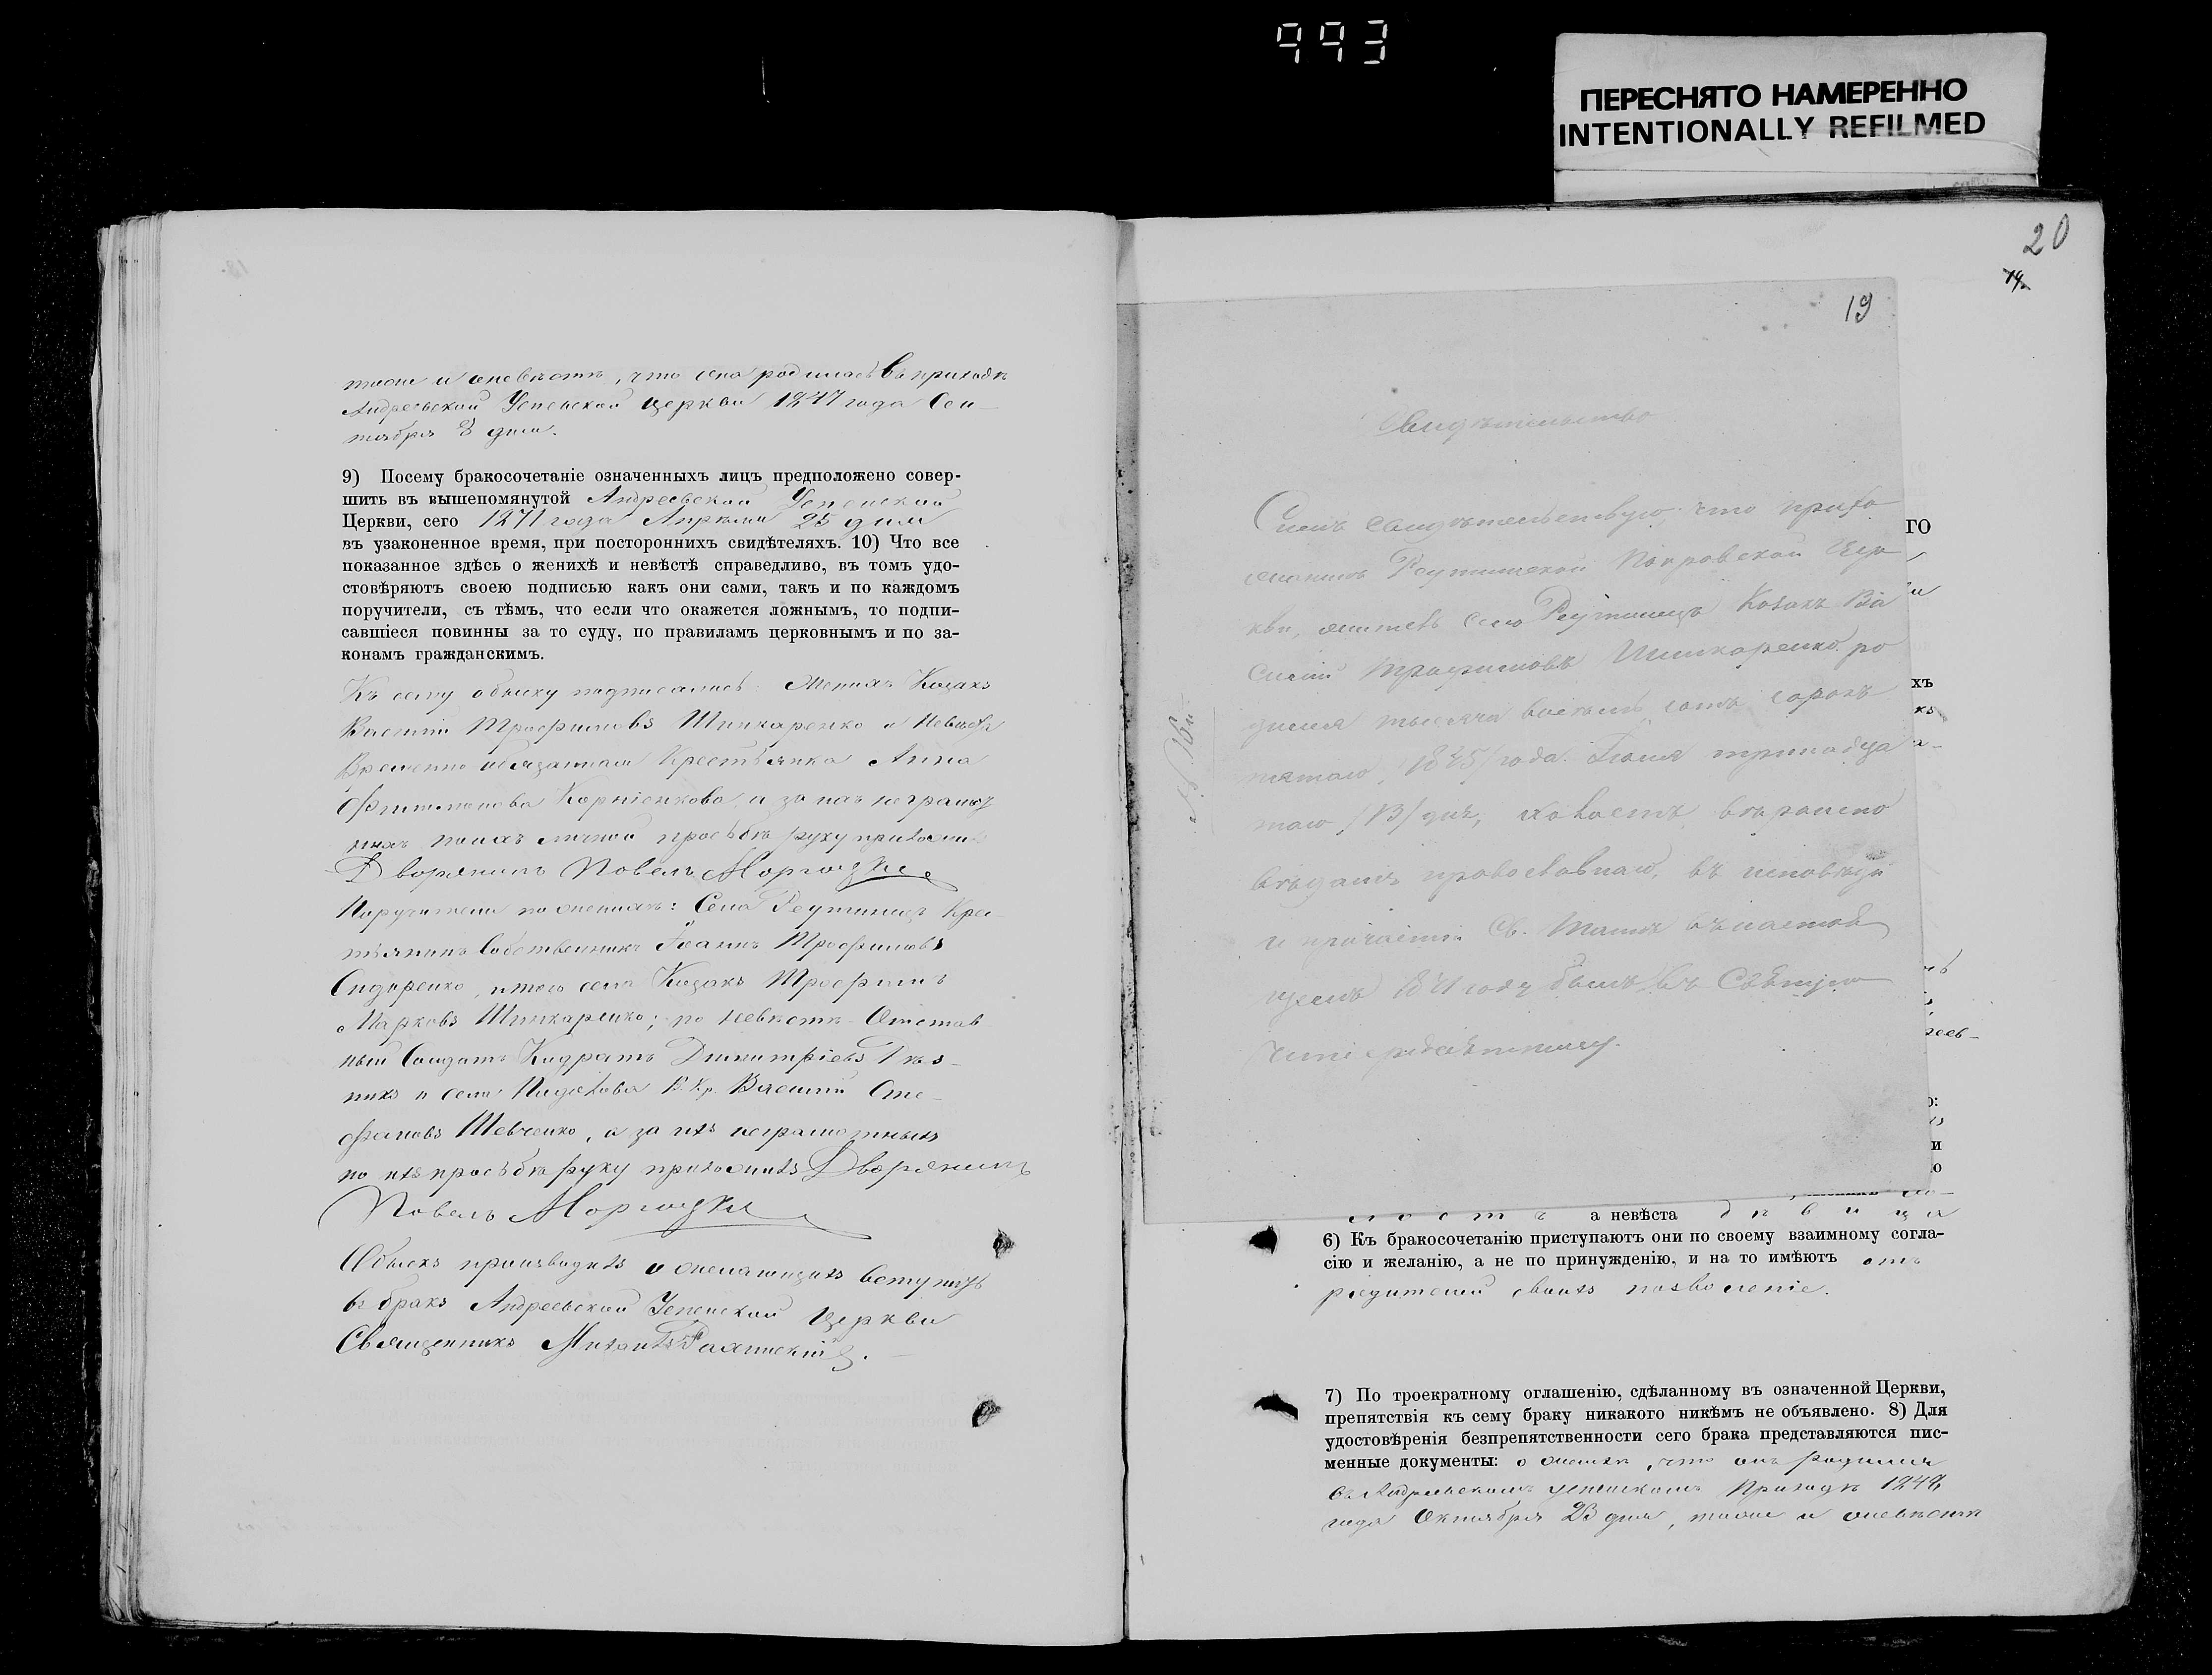 993
ПЕРЕСНЯТО НАМЕРЕННО
INTENTIONALLY REFILMED
тоже и оневѣстѣ, что она родилась въ приходѣ
Андреевской Успенской церкви 1847 года Сен-
тября 8 дня.
9) Посему бракосочетаніе означенныхъ лицъ предположено совер-
шить въ вышепомянутой Андреевской Успенской
Церкви, сего 1871 года Апрѣля 25 дня
въ узаконенное время, при постороннихъ свидѣтеляхъ. 10) Что все
показанное здѣсь о женихѣ и невѣстѣ справедливо, въ томъ удо-
стовѣряютъ своею подписью какъ они сами, такъ и по каждомъ
поручители, съ тѣмъ, что если что окажется ложнымъ, то подпи-
савшіеся повинны за то суду, по правиламъ церковнымъ и по за-
конамъ гражданскимъ.
Къ сему обыску подписались: Женихъ Козакъ
Василій Трофимовъ Шинкаренко и Невѣста
Временно обязанная Крестьянка Анна
Филимонова Корніенкова, а за нихъ неграмот
ныхъ поихъ личной просьбѣ руку приложилъ
Дворянинъ Павелъ
Поручители по женихѣ: Села Реутинецъ Крес-
тьянинъ Собственникъ Іоаннъ Трофимовъ
Сидоренко, итого села Козакъ Трофимъ
Марковъ Шинкаренко; по невѣстѣ Отстав
ный Солдатъ Кидратъ Димитріевъ
никъ и села В. Кр. Василій Сте-
фановъ Шевченко, а за ихъ неграмотныхъ
по ихъ просьбѣ руку приложилъ Дворянинъ
Павелъ
Обыскъ производилъ о желающихъ вступить
въ бракъ Андреевской Успенской Церкви
Священникъ Михаилъ
20
19
19
Свидѣтельство
Симъ свидѣтельствую, что прихо
жанинъ Реутинской Покровской Цер
кви, житель села Реутинецъ Козакъ Ва
силій Трофимовъ Шинкаренко ро
дился тысяча восемьсотъ сорокъ
пятаго, 1845 года. Іюля тринадца
таго /13/ дня, холостъ, вѣроиспо
вѣданія православнаго, въ исповѣди
и причастіи Св. Таинъ въ настоя
щемъ 1871 году былъ въ Святую
го
хъ
а невѣста дѣвица
6) Къ бракосочетанію приступаютъ они по своему взаимному согла-
сію и желанію, а не по принужденію, и на то имѣютъ отъ
родителей своихъ позволеніе.
7) По троекратному оглашенію, сдѣланному въ означенной Церкви,
препятствія къ сему браку никакого никѣмъ не объявлено. 8) Для
удостовѣренія безпрепятственности сего брака представляются пис-
менные документы: о женихѣ, что онъ родился
въ Андреевскомъ успенскомъ Приходѣ 1848
года Октября 23 дня, тоже и оневѣстѣ